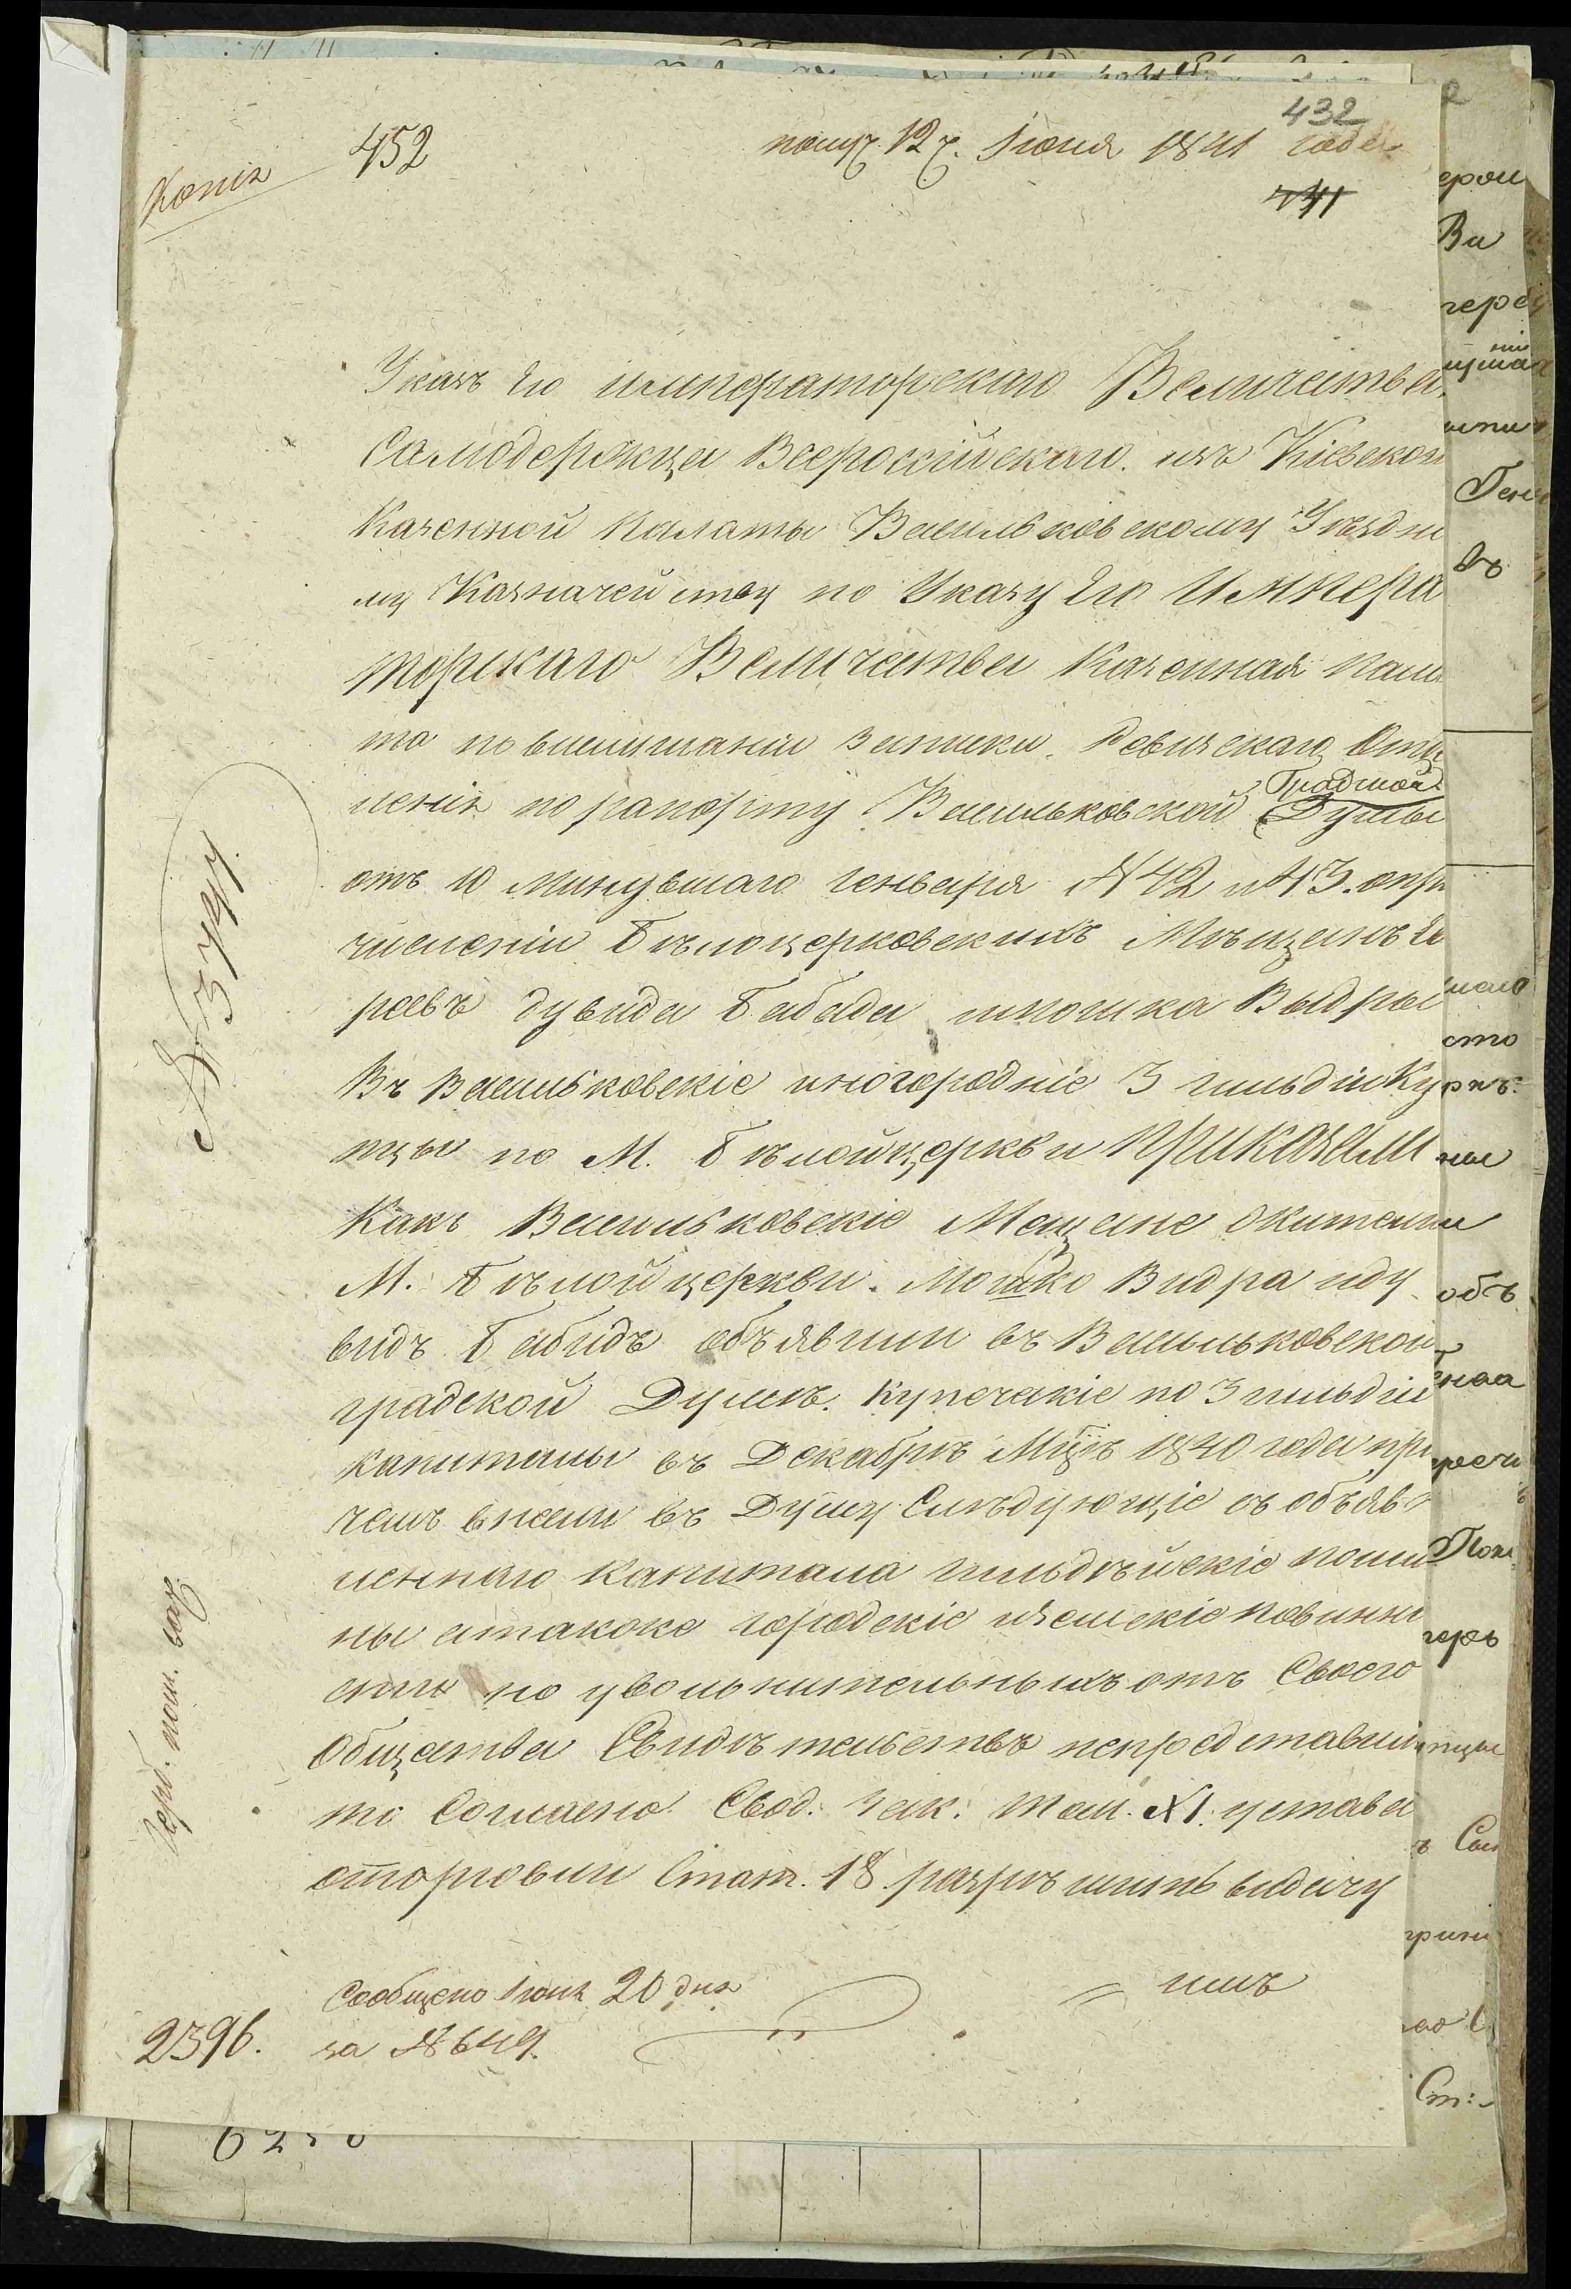 432
452
получ. 12 ч. Іюня 1841 года
Копія
431
Указъ Его императорскаго Величества,
Самодержца Всероссійскаго. изъ Кіевской
Казенной палаты Васильковскому Уѣздно
му Казначейству по Указу Его Импера
торскаго Величества Казенная пала
та по выслушаніи записки. Ревизскаго Отд
ленія порапорту Васильковской Градской Думы
отъ 10 минувшаго генваря № 42 и 43. опри
численіи Бѣлоцерковскихъ Мѣщанъ Ев
реевъ дувида Бабада имошка Выдры
Въ Васильковскіе иногородніе 3 гильдіи Ку
пцы по М. Бѣлойцеркви приказали
Какъ Васильковскіе Мещане жители
М. Бѣлой церкви. Мошко Видра иду
видъ Бабидъ объявили въ Васильковской
градской Думѣ. Купеческіе по 3 гильдіи
капиталы въ Декабрѣ Мцѣ 1840 года при
чемъ внесли въ Думу Слѣдующіе съ объяв
леннаго капитала гильдѣйскіе пошли
ны атакоже городскіе иземскіе повинно
сти но увольнительныхъ отъ Своего
Общества Свидѣтельствъ непредставили
то Согласно Свод. Зак. том. XI. устава
оторговли Стат. 18. разрѣшить выдачу
имъ
Сообщено Іюня 20 дня
за № 649.
2396.
№ 3791.
Герб. пош. взз.